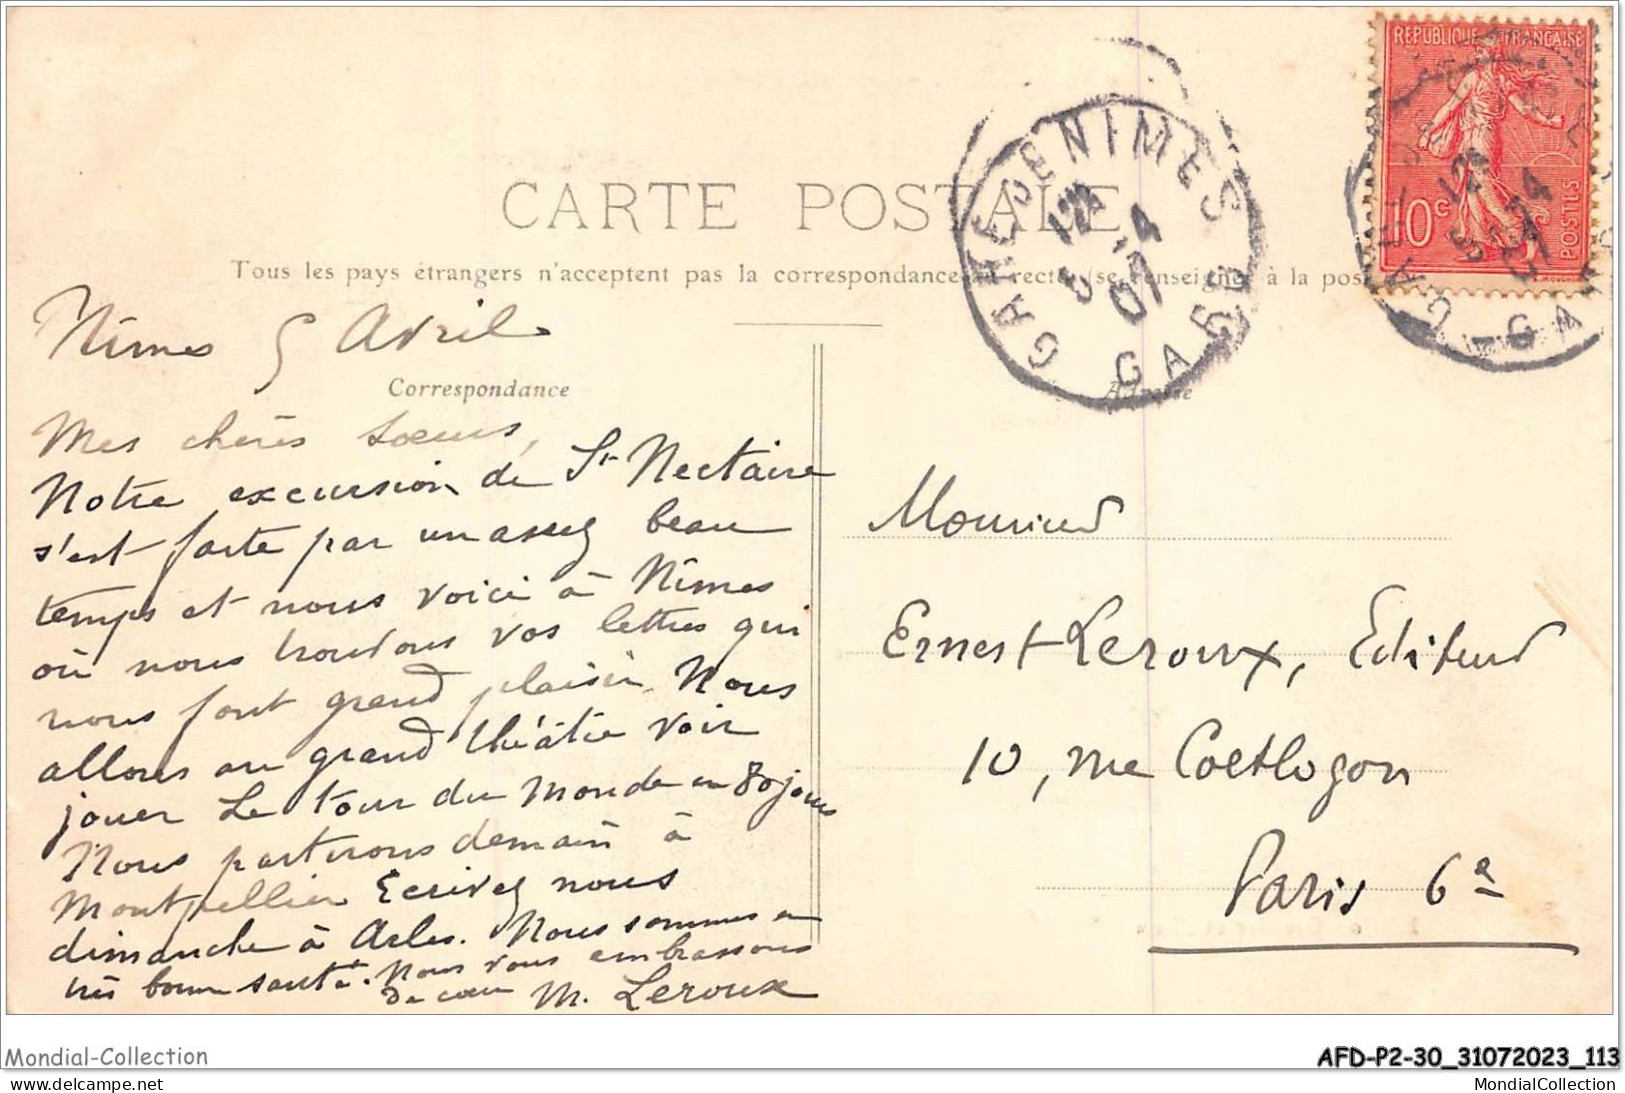 RÉPUBLIQUE FRANÇAISE
10c
POSTES
GARE DE NIMES
12
5 4
07
GARD
CARTE POSTALE
Tous les pays étrangers n'acceptent pas la correspondance au recto (se renseigner à la poste)
Nîmes 5 Avril
Correspondance
Adresse
Mes chères soeurs,
Notre excursion de St Nectaire
s'est faite par un assez beau
temps et nous voici à Nîmes
où nous trouvons vos lettres qui
nous font grand plaisir. Nous
allons au grand théâtre voir
jouer Le tour du Monde en 80 jours
Nous partirons demain à
Montpellier Ecrivez nous
dimanche à Arles. Nous sommes en
très bonne santé. Nous vous embrassons
de coeur M. Leroux
Monsieur
Ernest Leroux, Editeur
10, rue Coetlogon
Paris 6e
Mondial-Collection
AFD-P2-30_31072023_113
delcampe.net
MondialCollection